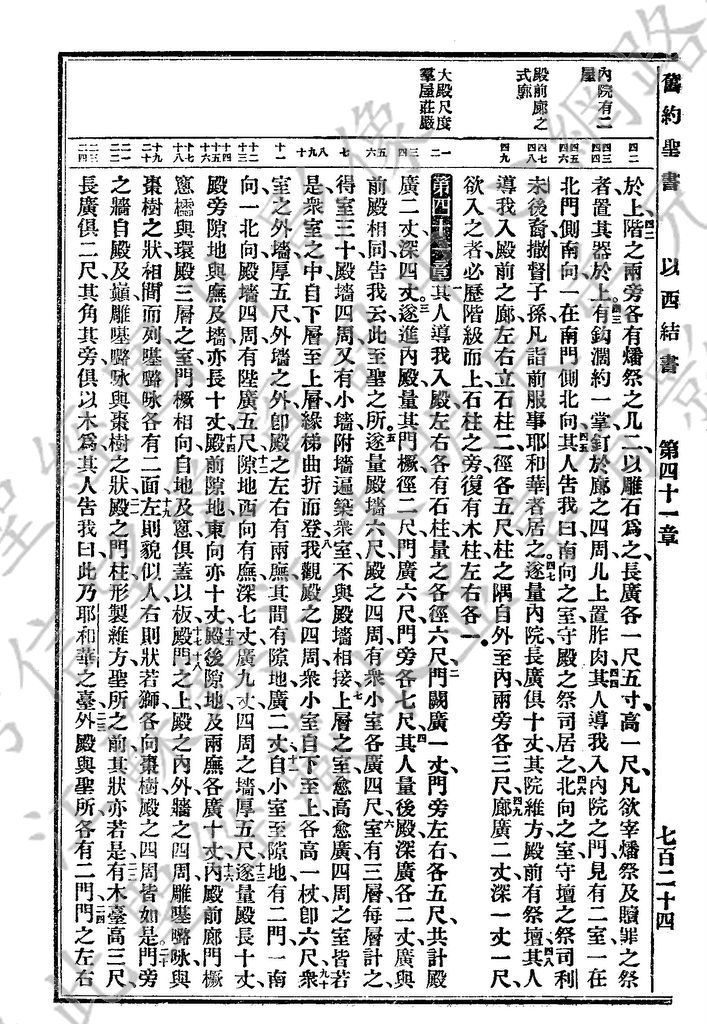 舊約聖書 以西結書 第四十一章 七百二十四
內院有二屋
殿前廊之式廓
大殿尺度羣屋莊嚴
四二 四三 四四 四五 四六 四七 四八 四九 一 二 三 四 五 六 七 八 九 十 十一 十二 十三 十四 十五 十六 十七 十八 十九 二十 二一 二二 二三 二四
於上階之兩旁各有燔祭之几二以雕石爲之長廣各一尺五寸高一尺凡欲宰燔祭及贖罪之祭
者置其器於上有鈎濶約一掌釘於廊之四周几上置胙肉其人導我入內院之門見有二室一在
北門側南向一在南門側北向其人告我曰南向之室守殿之祭司居之北向之室守壇之祭司利
未後裔撒督子孫凡詣前服事耶和華者居之遂量內院長廣俱十丈其院維方殿前有祭壇其人
導我入殿前之廊左右立石柱二徑各五尺柱之隅自外至內兩旁各三尺廊廣二丈深一丈一尺
欲入之者必歷階級而上石柱之旁復有木柱左右各一
第四十一章其人導我入殿左右各有石柱量之各徑六尺門闊廣一丈門旁左右各五尺共計殿
廣二丈深四丈遂進內殿量其門橛徑二尺門廣六尺門旁各七尺其人量後殿深廣各二丈廣與
前殿相同告我云此至聖之所遂量殿墻六尺殿之四周有衆小室各廣四尺室有三層每層計之
得室三十殿墻四周又有小墻附墻遍築衆室不與殿墻相接上層之室愈高愈廣四周之室皆若
是衆室之中自下層至上層緣梯曲折而登我觀殿之四周衆小室自下至上各高一杖卽六尺衆
室之外墻厚五尺外墻之外卽殿之左右有兩廡其間有隙地廣二丈自小室至隙地有二門一南
向一北向殿墻四周有陛廣五尺隙地西向有廡深七丈廣九丈四周之墻厚五尺遂量殿長十丈
殿旁隙地與廡及墻亦長十丈殿前隙地東向亦十丈殿後隙地及兩廡各廣十丈內殿前廊門橛
窻櫺與環殿三層之室門橛相向自地及窻俱蓋以板殿門之上殿之內外牆之四周雕𠼻嚧咏與
棗樹之狀相間而列𠼻嚧咏各有二面左則貌似人右則狀若獅各向棗樹殿之四周皆如是門旁
之牆自殿及巔雕𠼻嚧咏與棗樹之狀殿之門柱形製維方聖所之前其狀亦若是有木臺高三尺
長廣俱二尺其角其旁俱以木爲其人告我曰此乃耶和華之臺外殿與聖所各有二門門之左右